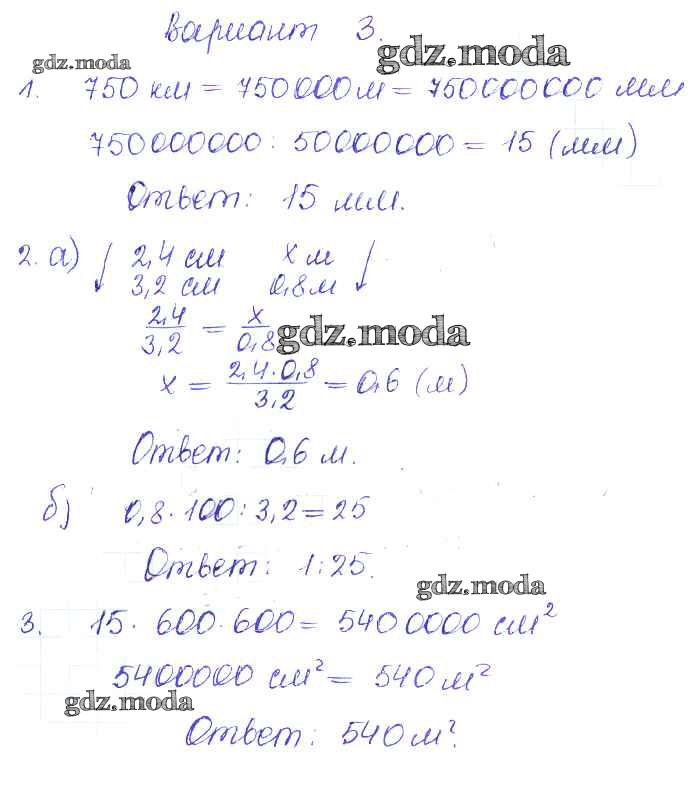 Вариант 3.
gdz.moda
gdz.moda
1. 750 км = 750000 м = 750000000 мм
750000000 : 50000000 = 15 (мм)
Ответ: 15 мм.
2. а) ↓ 2,4 см х м ↓
3,2 см 0,8 м
2,4/3,2 = х/0,8
gdz.moda
х = 2,4·0,8/3,2 = 0,6 (м)
Ответ: 0,6 м.
б) 0,8·100:3,2=25
Ответ: 1:25.
gdz.moda
3. 15·600·600= 5400000 см²
5400000 см² = 540 м²
gdz.moda
Ответ: 540 м².